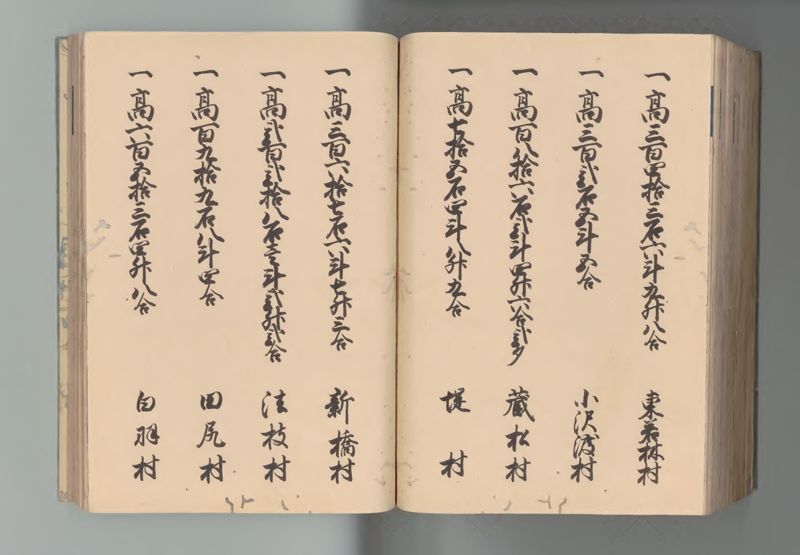 一高三百四拾三石六斗九升八合 東若林村
一高三百弐石五斗五合 小沢渡村
一高百八拾六石弐斗四升六合弐夕 蔵松村
一高七拾五石四斗八升九合 堤村
一高三百六拾七石六斗七升三合 新橋村
一高弐百弐拾八石壱斗弐升弐合 法枝村
一高百九拾九石八斗四合 田尻村
一高六百五拾三石四升八合 白羽村